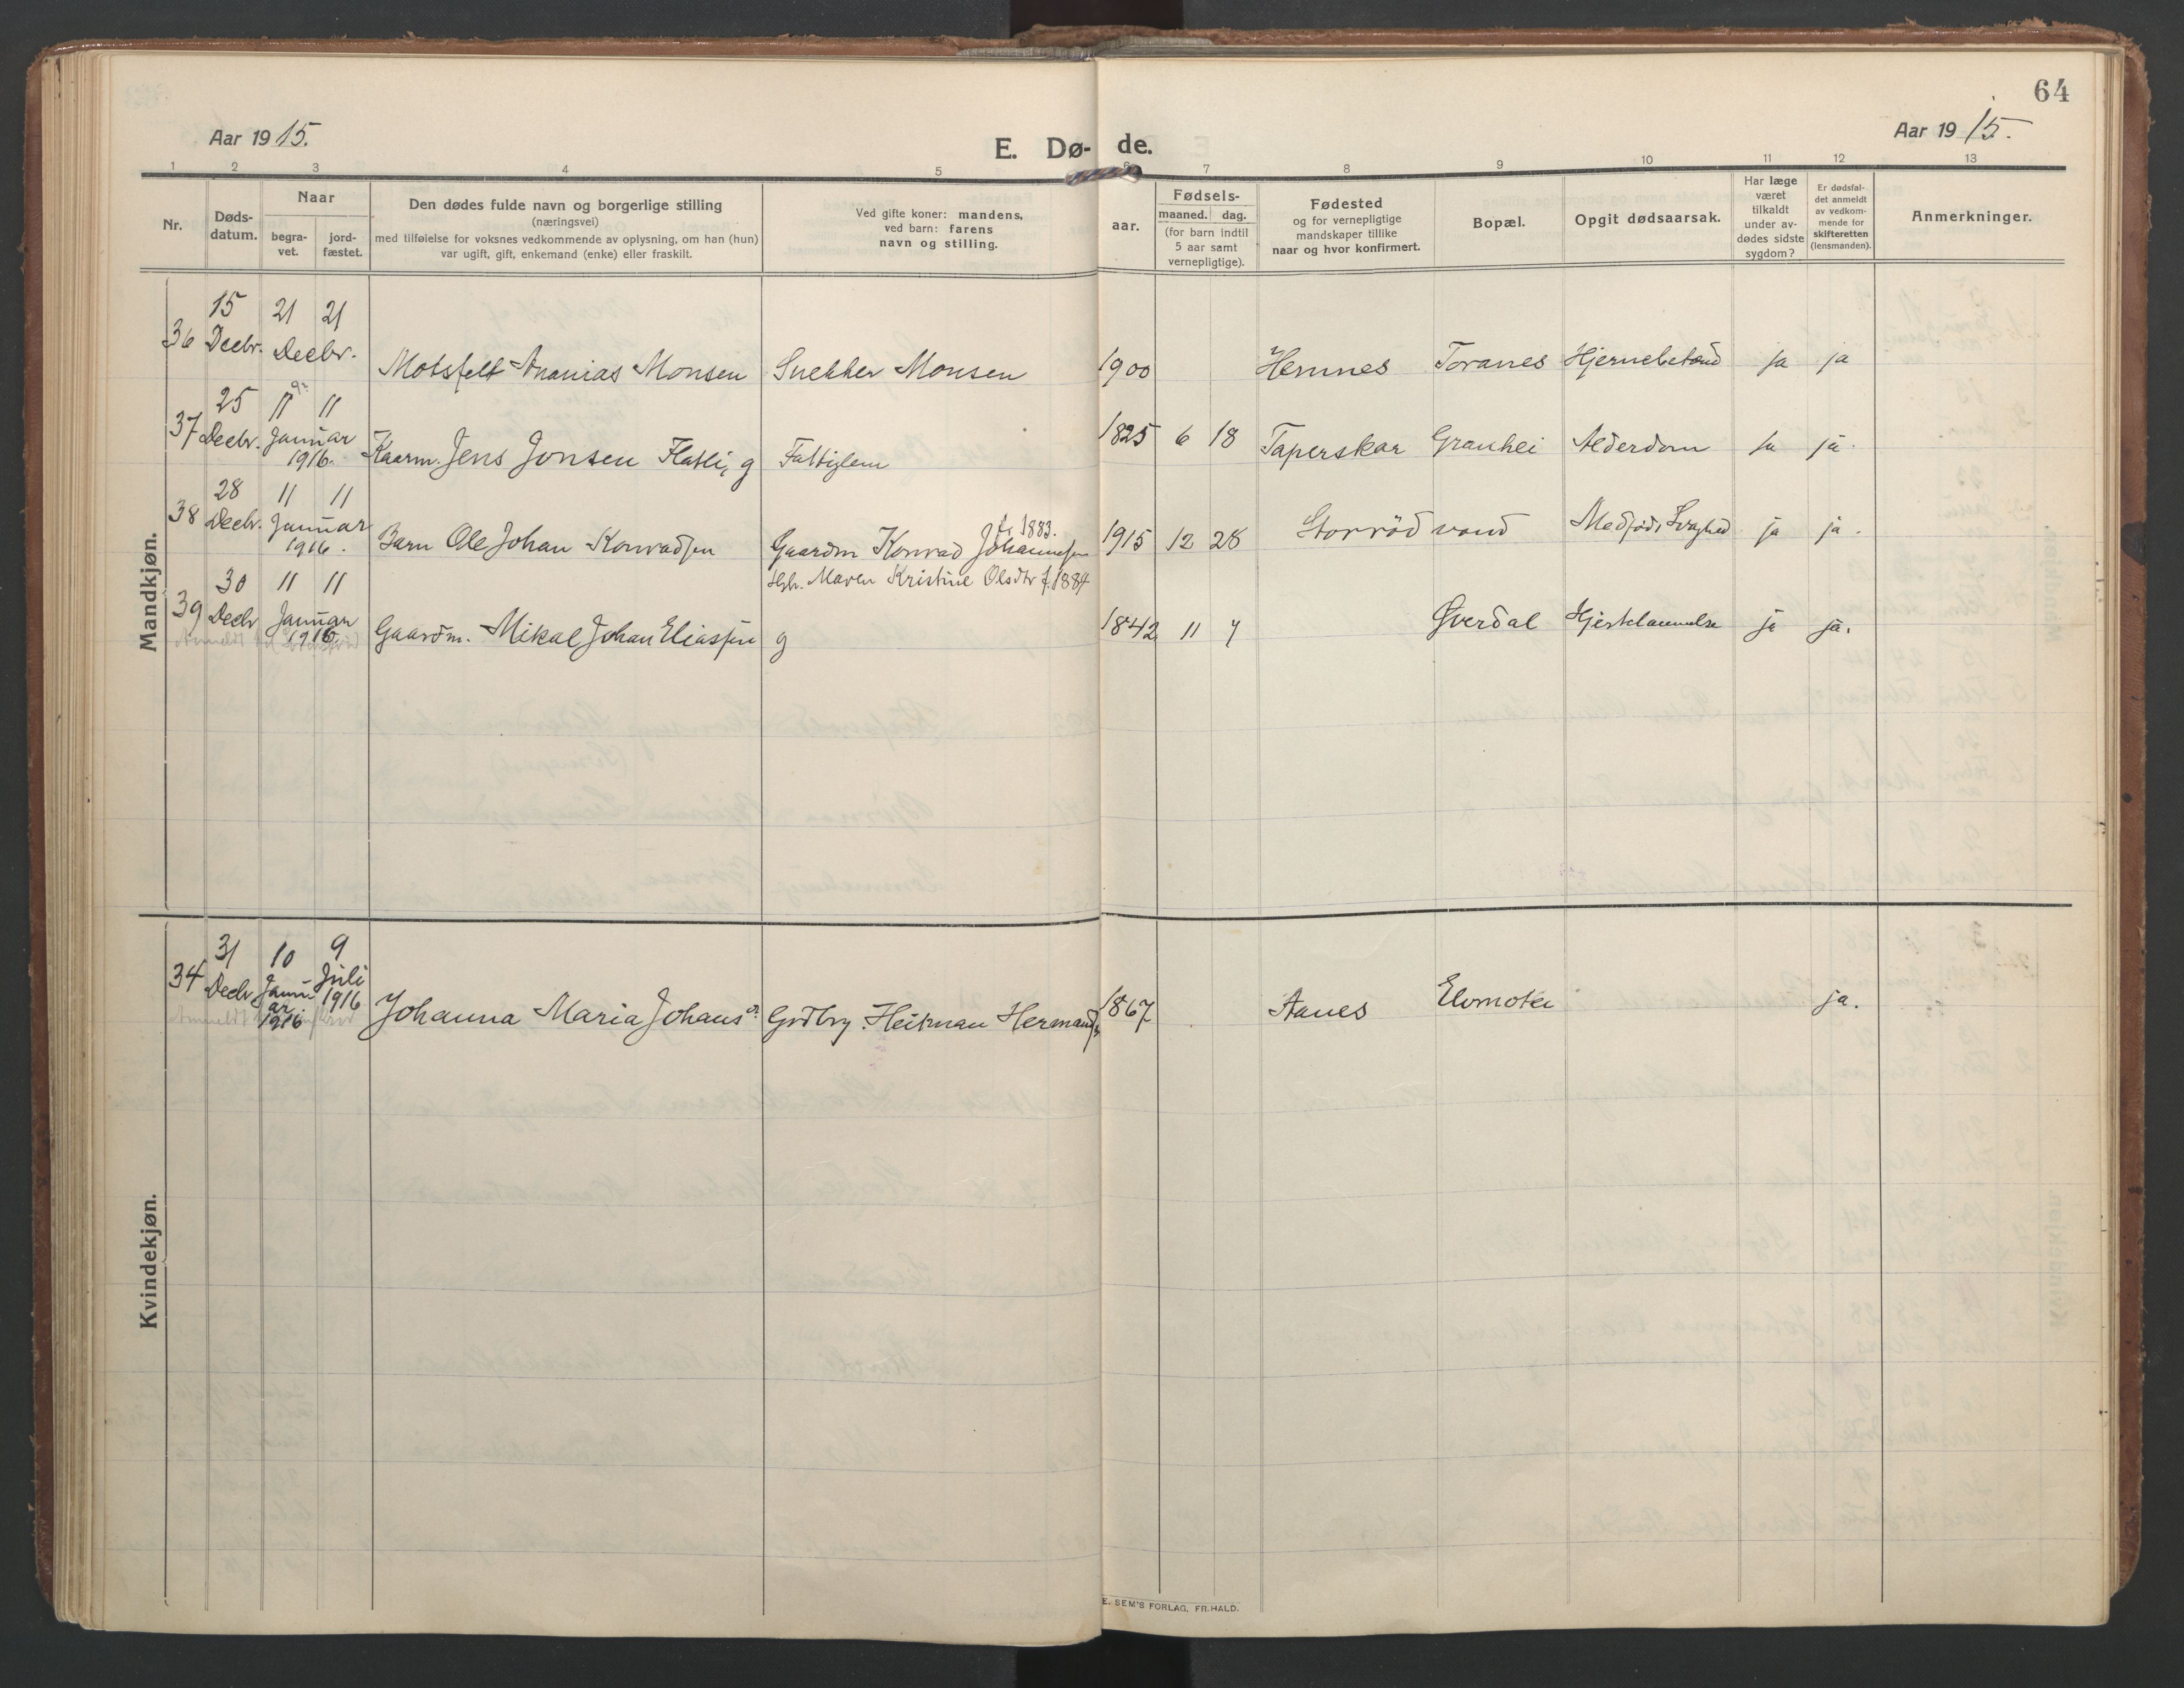 64
Aar 1915.
Aar 1915.
E. Dø- de.
1 2 3 4 5 6 7 8 9 10 11 12 13
Nr.
Døds-
datum.
Naar
begra-
vet.
jord-
fæstet.
Den dødes fulde navn og borgerlige stilling
(næringsvei)
med tilføielse for voksnes vedkommende av oplysning, om han (hun)
var ugift, gift, enkemand (enke) eller fraskilt.
Ved gifte koner: mandens,
ved barn: farens
navn og stilling.
Fødsels-
aar.
maaned. dag.
(for barn indtil
5 aar samt
vernepligtige).
Fødested
og for vernepligtige
mandskaper tillike
naar og hvor konfirmert.
Bopæl.
Opgit dødsaarsak.
Har læge
været
tilkaldt
under av-
dødes sidste
sygdom?
Er dødsfal-
det anmeldt
av vedkom-
mende for
skifteretten
(lensmanden).
Anmerkninger.
Mandkjøn.
15 21 21
36 Decbr. Decbr. Motsfelt Ananias Monsen Snekker Monsen 1900 Hemnes Toranes Hjernebetænd ja ja
25 11 11
37 Decbr. Januar
1916. Kaarm. Jens Jonsen Flatli, g Fattiglem 1825 6 18 Taperskar Granhei Alderdom ja ja.
28 11 11
38 Decbr. Januar
1916. Barn Ole Johan Konradsen Gaardm Konrad Johannesen f. 1883. 1915 12 28 Storrödvand Medfødt Svaghed ja ja.
Maren Kristine Olsdtr f. 1884
30 11 11
39 Decbr Januar
1916 Gaardm. Mikal Johan Eliassen g 1842 11 7 Øverdal Hjertelammelse ja ja.
Anmeldt
Kvindekjøn.
31 10 9
34 Decbr Janu-
ar
1916 Juli
1916 Johanna Maria Johansdr Grdbrg. Heikman Hermands 1867 Aanes Elvmoten ja.
Anmeldt
E. SEM'S FORLAG, FR.HALD.